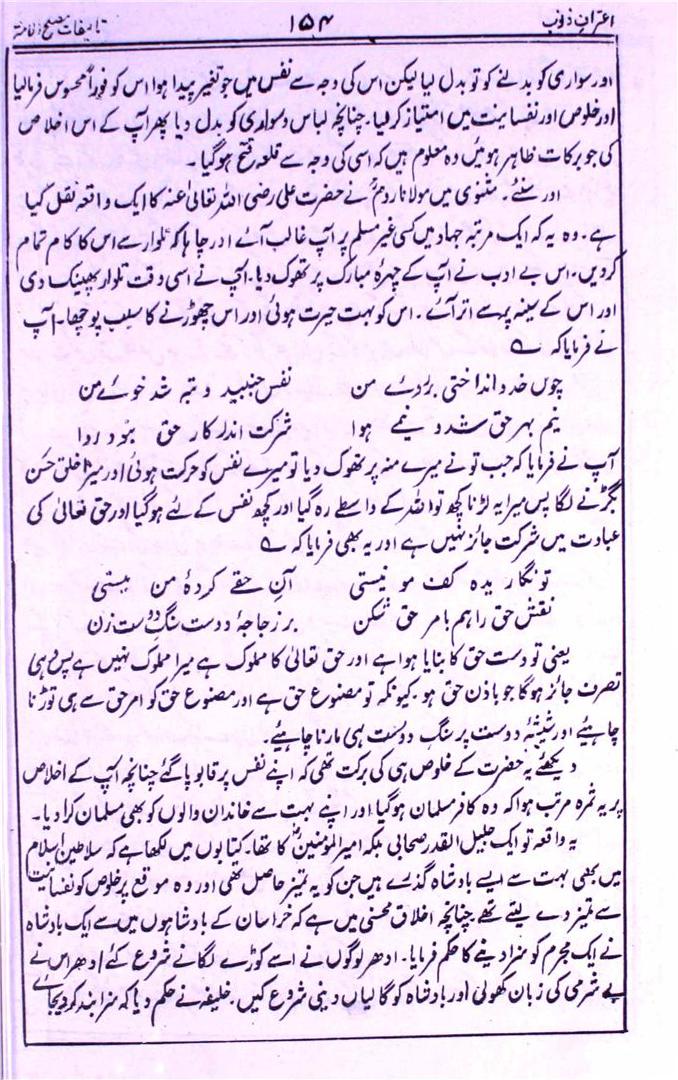 اعترافِ ذنوب ۱۵۴ تالیفات مصلح الامتؒ
اور سواری کو بدلنے کو تو بدل لیا لیکن اس کی وجہ سے نفس میں جو تغیر پیدا ہوا اس کو فوراً محسوس فرمالیا
اور خلوص اور نفسانیت میں امتیاز کر لیا۔ چنانچہ لباس و سواری کو بدل دیا پھر آپ کے اس اخلاص
کی جو برکات ظاہر ہوئیں وہ معلوم ہیں کہ اسی کی وجہ سے قلعہ فتح ہو گیا۔
اور سنئے۔ مثنوی میں مولانا رومؒ نے حضرت علی رضی اللہ تعالیٰ عنہ کا ایک واقعہ نقل کیا
ہے۔ وہ یہ کہ ایک مرتبہ جہاد میں کسی غیر مسلم پر آپ غالب آئے اور چاہا کہ تلوار سے اس کا کام تمام
کردیں۔ اس بے ادب نے آپ کے چہرۂ مبارک پر تھوک دیا۔ آپ نے اسی وقت تلوار پھینک دی
اور اس کے سینہ پر سے اتر آئے۔ اس کو بہت حیرت ہوئی اور اس چھوڑنے کا سبب پوچھا۔ آپ
نے فرمایا کہ ؎
چوں خدو انداختی بر روئے من نفس جنبید و تبہ شد خوئے من
نیم بہر حق شد و نیمے ہوا شرکت اندر کار حق نبود روا
آپ نے فرمایا کہ جب تو نے میرے منہ پر تھوک دیا تو میرے نفس کو حرکت ہوئی اور میرا خلق حسن
بگڑنے لگا پس میرا یہ لڑنا کچھ تو اللہ کے واسطے رہ گیا اور کچھ نفس کے لئے ہو گیا اور حق تعالیٰ کی
عبادت میں شرکت جائز نہیں ہے اور یہ بھی فرمایا کہ ؎
تو نگاریدہ کف مولیستی آنِ حقے کردۂ من نیستی
نقش حق را ہم بامر حق شکن بر زجاجۂ دوست سنگِ دوست زن
یعنی تو دست حق کا بنایا ہوا ہے اور حق تعالیٰ کا مملوک ہے میرا مملوک نہیں ہے پس وہی
تصرف جائز ہوگا جو باذن حق ہو۔ کیونکہ تو مصنوع حق ہے اور مصنوع حق کو امر حق سے ہی توڑنا
چاہیئے اور شیشۂ دوست پر سنگ دوست ہی مارنا چاہئے۔
دیکھئے یہ حضرت کے خلوص ہی کی برکت تھی کہ اپنے نفس پر قابو پا گئے چنانچہ آپ کے اخلاص
پر یہ ثمرہ مرتب ہوا کہ وہ کافر مسلمان ہو گیا اور اپنے بہت سے خاندان والوں کو بھی مسلمان کرادیا۔
یہ واقعہ تو ایک جلیل القدر صحابی بلکہ امیر المومنینؓ کا تھا۔ کتابوں میں لکھا ہے کہ سلاطین اسلام
میں بھی بہت سے ایسے بادشاہ گذرے ہیں جن کو یہ تمیز حاصل تھی اور وہ موقع پر خلوص کو نفسانیت
سے تمیز دے لیتے تھے چنانچہ اخلاق محسنی میں ہے کہ خراسان کے بادشاہوں میں سے ایک بادشاہ
نے ایک مجرم کو سزا دینے کا حکم فرمایا۔ ادھر لوگوں نے اسے کوڑے لگانے شروع کئے ادھر اس نے
بے شرمی کی زبان کھولی اور بادشاہ کو گالیاں دینی شروع کیں۔ خلیفہ نے حکم دیا کہ سزا بند کردیجائے